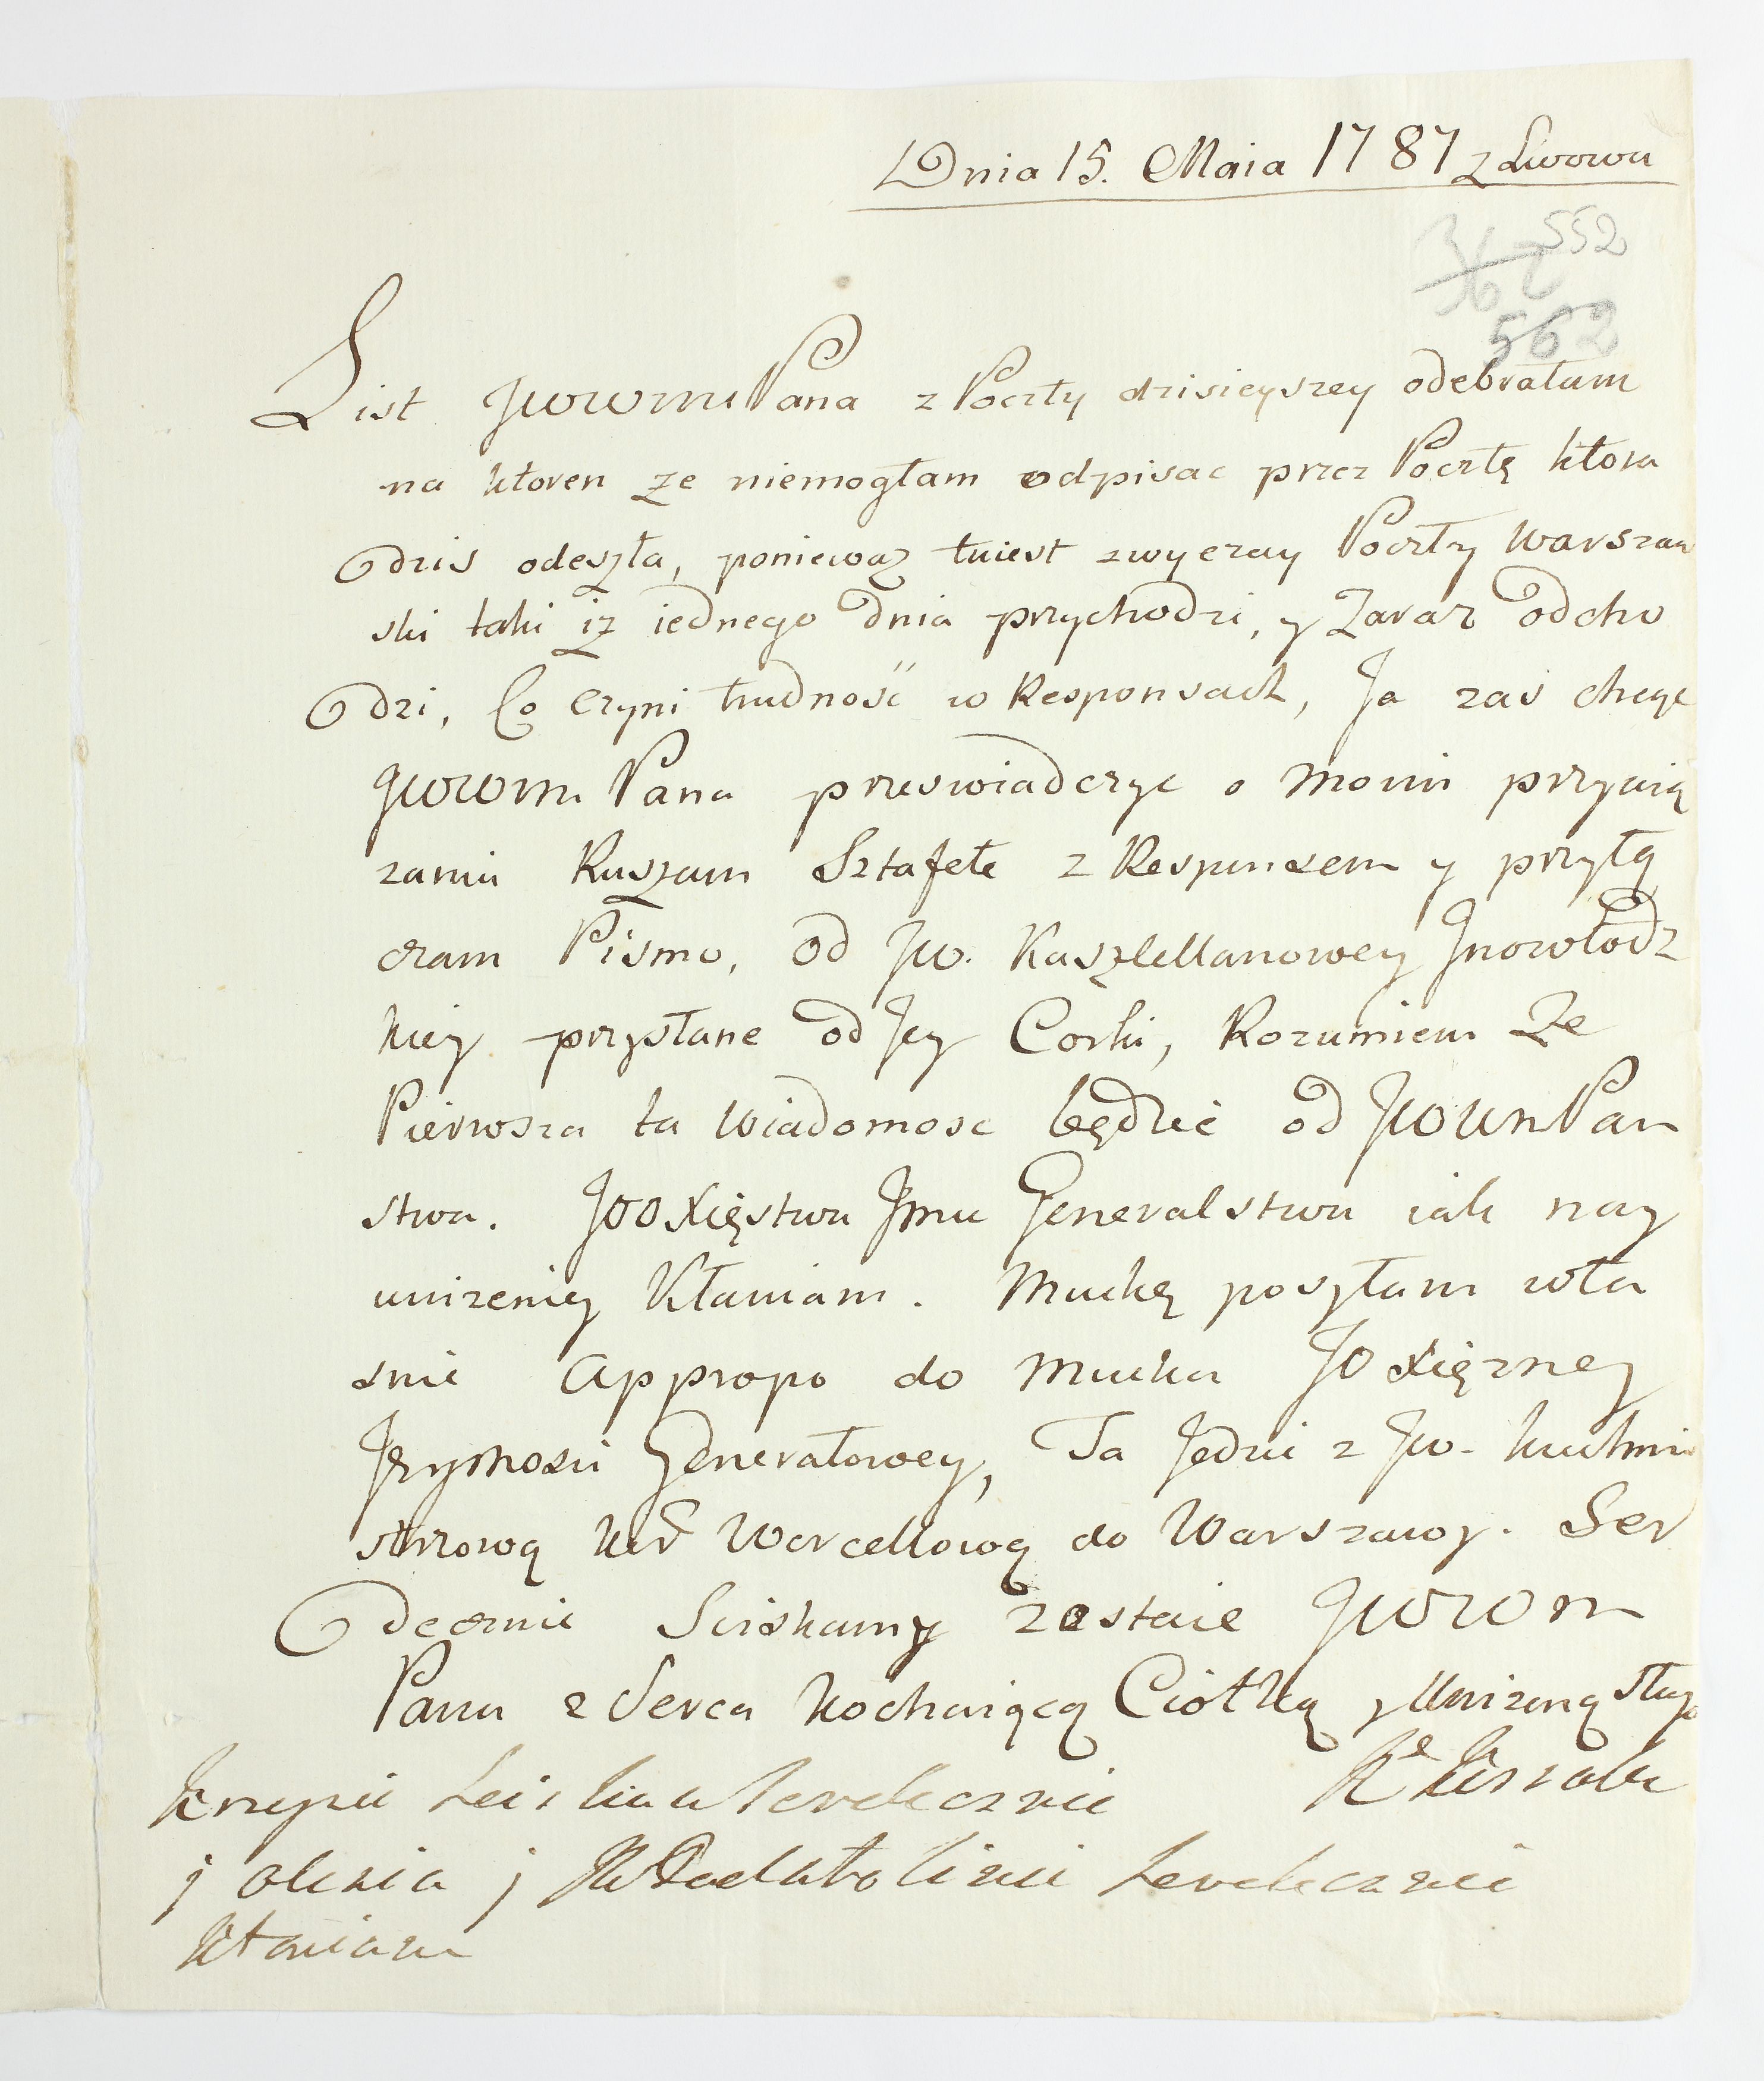 Dnia 15. Maia 1787 z Lwowa
552
362
562
List JWWMPana z Poczty dzisieyszey odebrałam
na ktoren że niemogłam odpisac przez Pocztę ktora
dzis odeszła, ponieważ tuiest zwyczay Poczty Warszaw
ski taki iż iednego dnia przychodzi, y Zaraz odcho
dzi, Co czyni trudność w Responsach, Ja zaś chcąc
JWWM Pana przeswiadczyc o moim przywią
zaniu Ruszam Sztafete z Responsem y przyłą
czam Pismo, od JW. Kasztellanowey Jnowłodz
kiey przysłane od Jey Corki, Rozumiem że
Pierwsza ta wiadomosc będzie od JWWMPan
stwa. JOOXięstwu Jmu Generalstwu iak nay
unizeniey Kłaniam. Muchę posyłam wła
snie appropo do mucha JO Xięzney
Jeymosci Generałowey, Ta Jedzie z JW. kuchmi
strzową Worcellową do Warszawy. Ser
decznie Sciskamy zostaie JWWM
Pana z Serca kochaiącą Ciotką y Unizoną sług
serdecznie
j j serdecznie
kłaniam